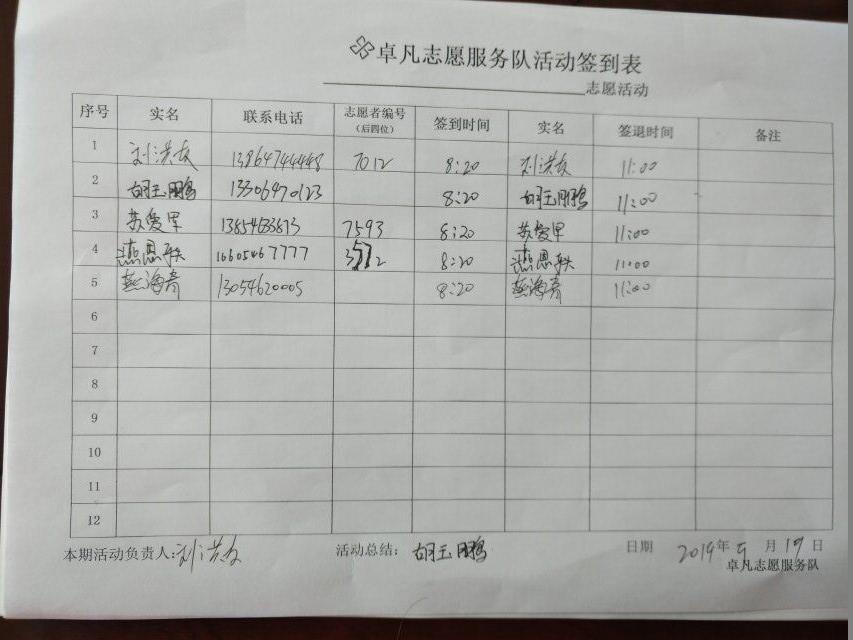 卓凡志愿服务队活动签到表
志愿活动
序号 实名 联系电话 志愿者编号（后四位） 签到时间 实名 签退时间 备注
1 刘洪友 13864744448 7012 8:20 刘洪友 11:00
2 胡玉鹏 13306470123 8:20 胡玉鹏 11:00
3 苏爱军 7593 8:20 苏爱军 11:00
4 燕恩 16605467777 8:20 燕恩 11:00
5 燕海青 13054620005 8:20 燕海青 11:00
6
7
8
9
10
11
12
本期活动负责人:刘洪友 活动总结: 胡玉鹏 日期 2019年 月19日
卓凡志愿服务队